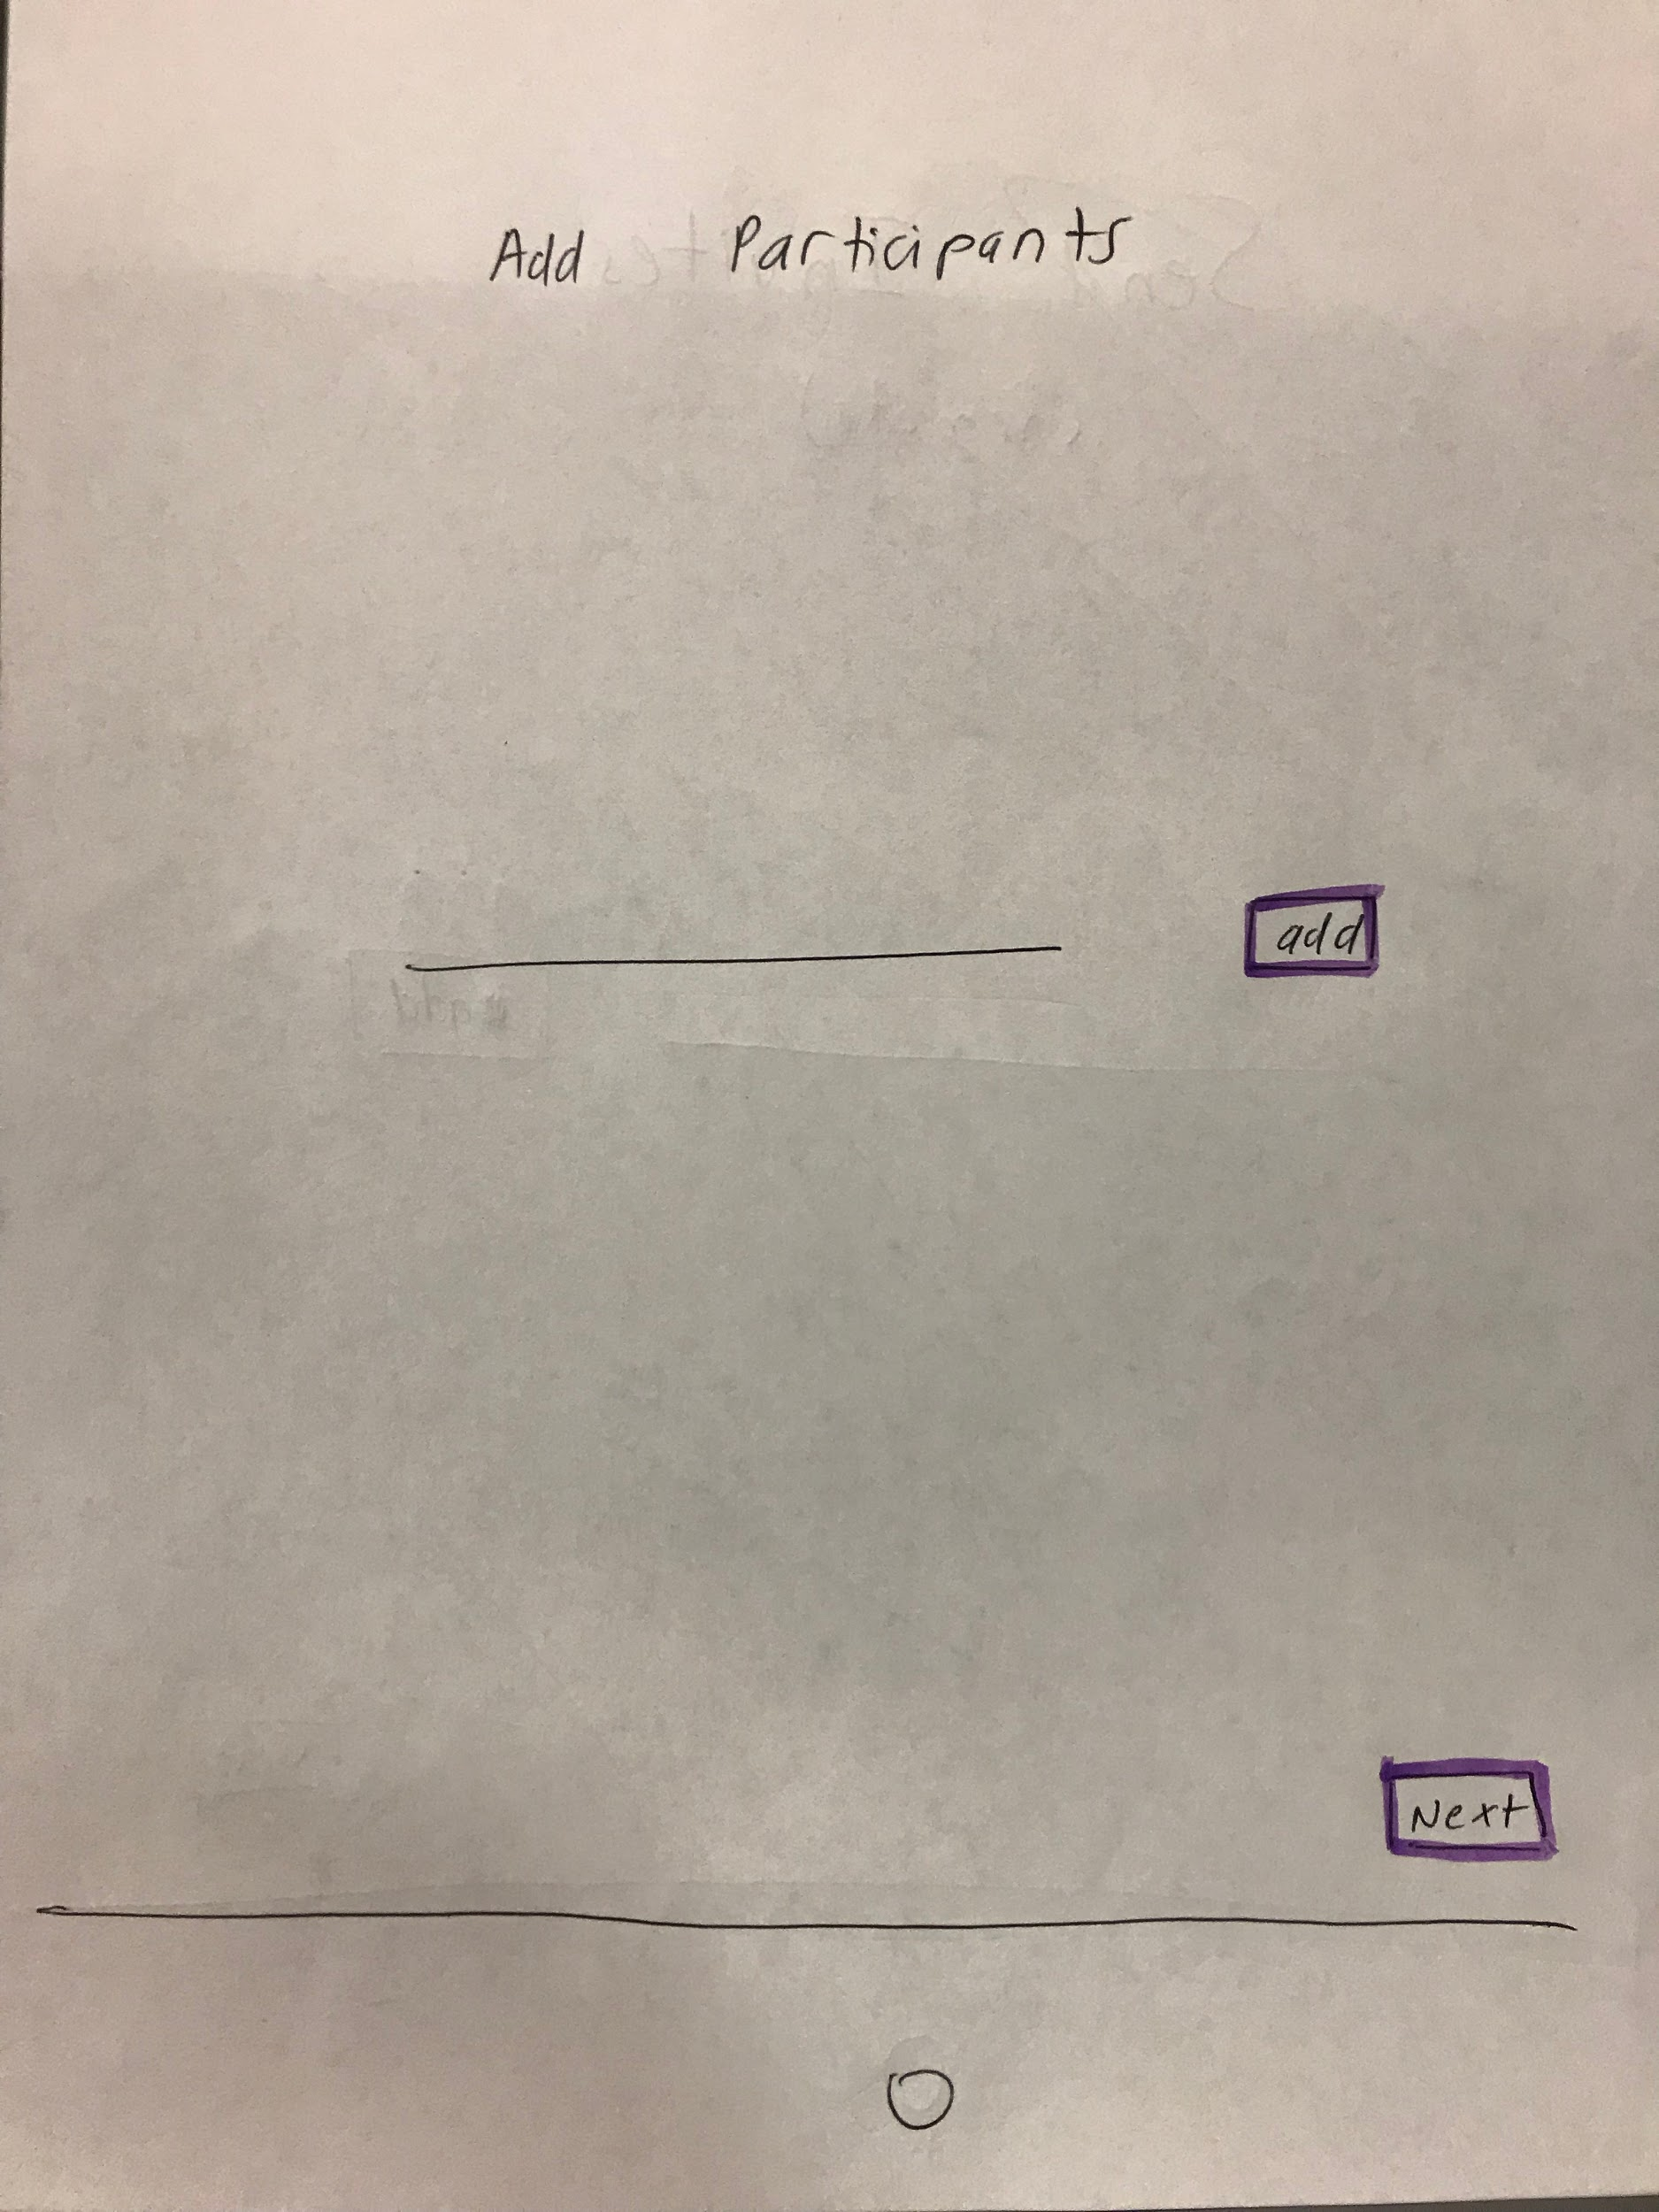 Add Participants
add
Next